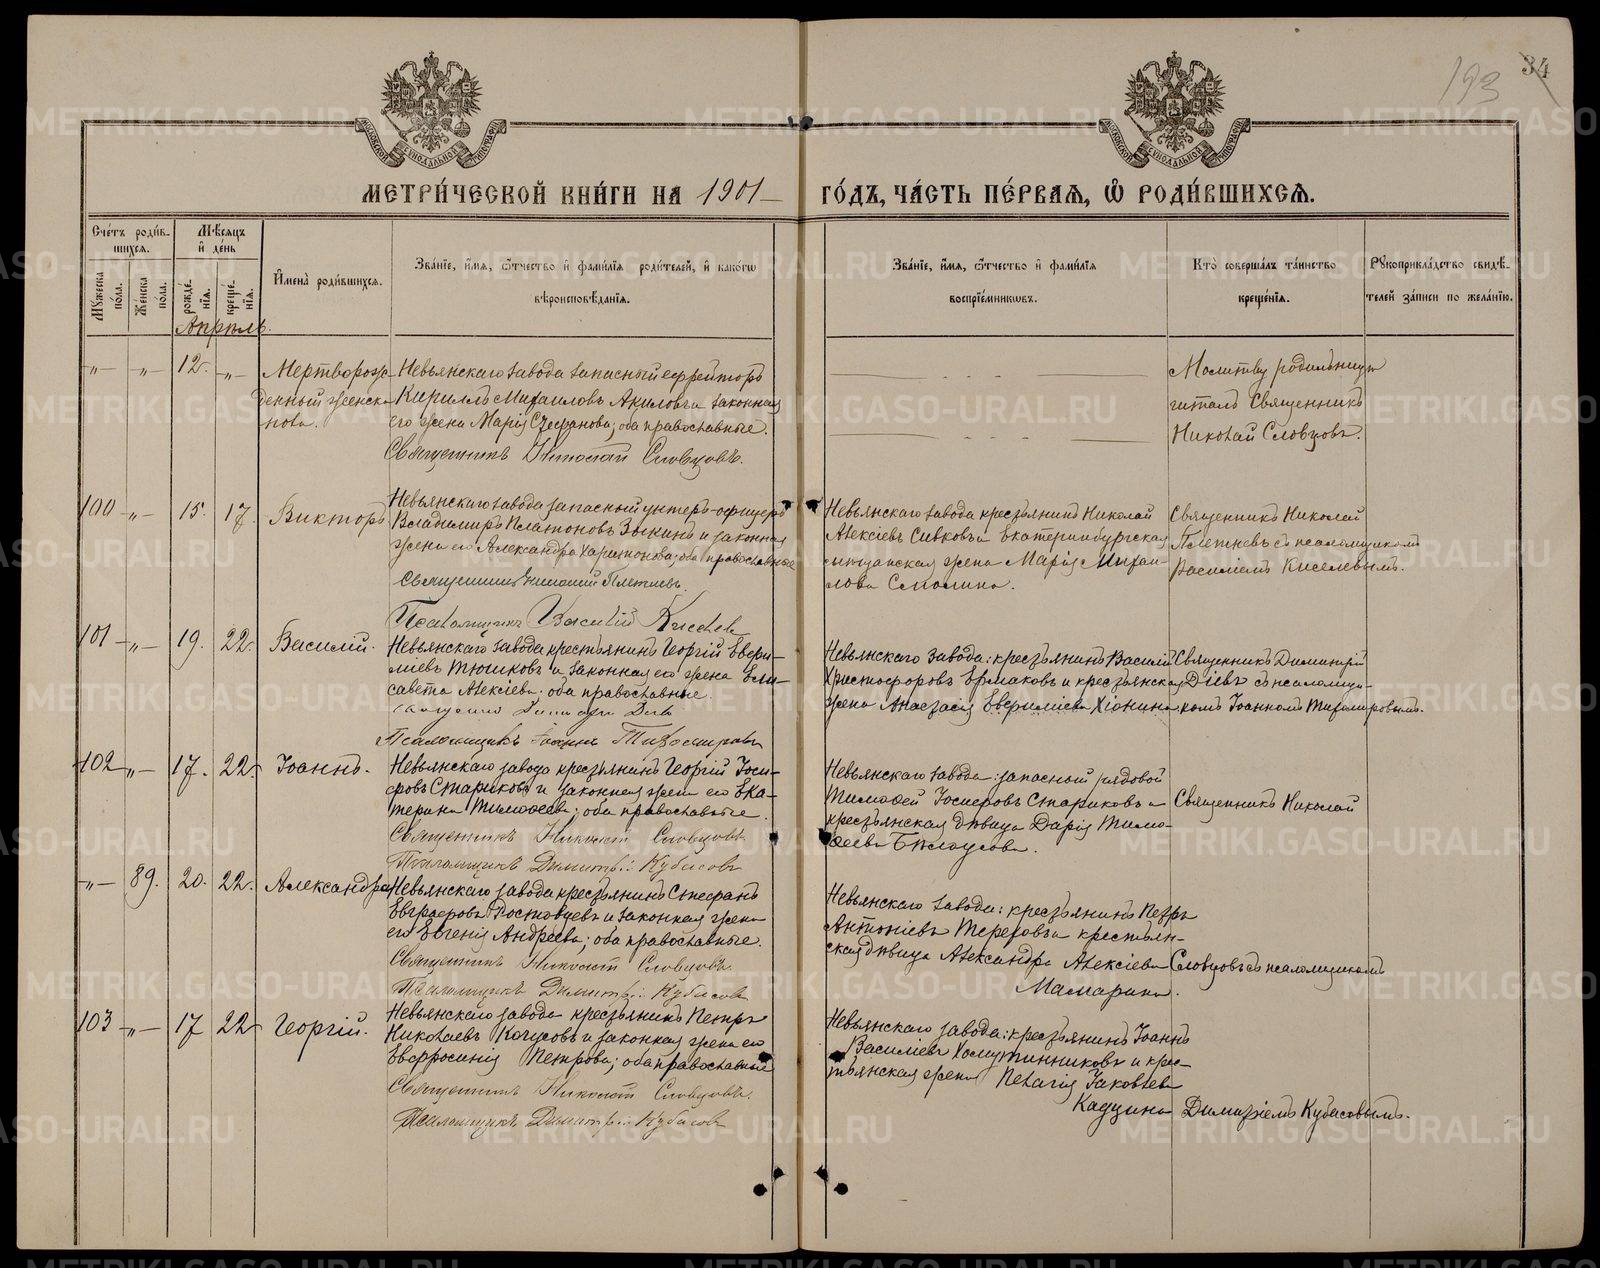 193
34
МЕТРИ́ЧЕСКОЙ КНИ́ГИ НА 1901 ГО́ДЪ, ЧА́СТЬ ПЕ́РВАЯ, Ѿ РОДИ́ВШИХСЯ.
МОСКОВСКОЙ СѴНОДАЛЬНОЙ ТИПОГРАФІИ
МОСКОВСКОЙ СѴНОДАЛЬНОЙ ТИПОГРАФІИ
Сче́тъ роди́в-
шихся.
Мꙋжеска по́ла.
Же́нска по́ла.
Мѣ́сяцъ
и҆ де́нь
рожде́нїя.
креще́нїя.
И҆мена̀ роди́вшихся.
Зва́нїе, и҆́мя, ѻ҆́тчество и҆ фами́лїя роди́телей, и҆ како́гѡ
вѣроисповѣ́данїя.
Зва́нїе, и҆́мя, ѻ҆́тчество и҆ фами́лїя
воспрїе́мникѡвъ.
Кто̀ соверша́лъ та́инство
креще́нїя.
Рꙋкоприкла́дство свидѣ́-
телей за́писи по жела́нїю.
Апрѣль.
-"- -"- 12. -"-
Мертворож-
денный женска
пола.
Невьянскаго завода запасный ефрейторъ
Кириллъ Михаиловъ Акиловъ и законная
его жена Марія Стефанова; оба православные.
Священникъ Николай Словцовъ.
Молитву родильницѣ
читалъ Священникъ
Николай Словцовъ.
100 -"- 15. 17.
Викторъ
Невьянскаго завода запасный унтеръ-офицеръ
Владимиръ Платоновъ Зыкинъ и законная
жена его Александра Харитонова; оба православные
Священникъ Николай Плетневъ.
Псаломщикъ Василій Киселевъ
Невьянскаго завода крестьянинъ Николай
Алексіевъ Сивковъ и Екатеринбургская
мѣщанская жена Марія Михаи-
лова Смолина.
Священникъ Николай
Плетневъ съ псаломщикомъ
Василіемъ Киселевымъ.
101 -"- 19. 22.
Василій.
Невьянскаго завода крестьянинъ Георгій Еѳи-
міевъ Тюшковъ и законная его жена Ели-
савета Алексіева; оба православные.
Псаломщикъ Іоаннъ Тихомировъ
Невьянскаго Завода: крестьянинъ Василій
Христофоровъ Ермаковъ и крестьянская
жена Анастасія Хіонина
Священникъ Димитрій
Діевъ съ псаломщи-
комъ Іоанномъ Тихомировымъ.
102 -"- 17. 22.
Іоаннъ.
Невьянскаго завода крестьянинъ Георгій Іоси-
фовъ Стариковъ и законная жена его Ека-
терина Тимоѳеева; оба православные.
Священникъ Николай Словцовъ
Псаломщикъ Димитрій Кубасовъ
Невьянскаго завода: запасный рядовой
Тимоѳей Іосифовъ Стариковъ и
крестьянская дѣвица Дарія Тимо-
ѳеева Бѣлоусова.
Священникъ Николай
-"- 89. 20. 22.
Александра
Невьянскаго завода крестьянинъ Стефанъ
Евграфовъ Ростовцевъ и законная жена
его Евгенія Андреева; оба православные.
Священникъ Николай Словцовъ.
Псаломщикъ Димитрій Кубасовъ
Невьянскаго завода: крестьянинъ Петръ
Антоніевъ Тереховъ и крестьян-
ская дѣвица Александра Алексіева
Мамарина.
Словцовъ съ псаломщикомъ
103 -"- 17 22
Георгій.
Невьянскаго завода крестьянинъ Петръ
Николаевъ Коцусовъ и законная жена его
Евфросинія Петрова; оба православные
Священникъ Николай Словцовъ.
Псаломщикъ Димитрій Кубасовъ
Невьянскаго завода: крестьянинъ Іоаннъ
Василіевъ Хомутинниковъ и крес-
тьянская жена Пелагія Іаковлева
Кадцина
Димитріемъ Кубасовымъ.
METRIKI.GASO-URAL.RU